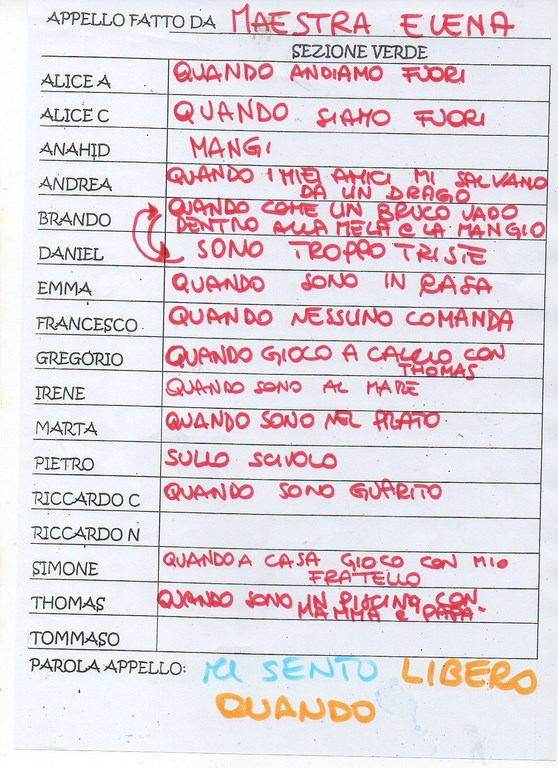 APPELLO FATTO DA MAESTRA ELENA
SEZIONE VERDE
ALICE A QUANDO ANDIAMO FUORI
ALICE C QUANDO SIAMO FUORI
ANAHID MANGI
ANDREA QUANDO I MIEI AMICI MI SALVANO
DA UN DRAGO
BRANDO QUANDO COME UN BRUCO VADO
DENTRO ALLA MELA E LA MANGIO
DANIEL SONO TROPPO TRISTE
EMMA QUANDO SONO IN CASA
FRANCESCO QUANDO NESSUNO COMANDA
GREGORIO QUANDO GIOCO A CALCIO CON
THOMAS
IRENE QUANDO SONO AL MARE
MARTA QUANDO SONO NEL PRATO
PIETRO SULLO SCIVOLO
RICCARDO C QUANDO SONO GUARITO
RICCARDO N
SIMONE QUANDO A CASA GIOCO CON MIO
FRATELLO
THOMAS QUANDO SONO IN PISCINA CON
MAMMA E PAPA'
TOMMASO
PAROLA APPELLO: MI SENTO LIBERO
QUANDO